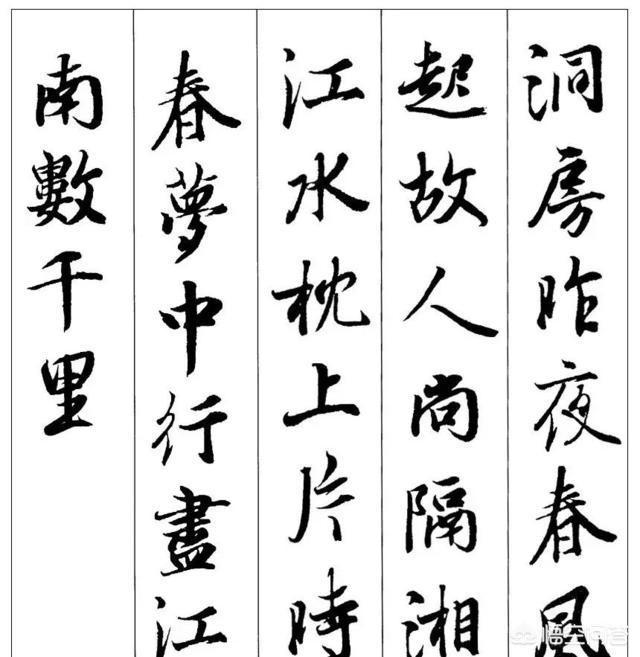 洞房昨夜春風
起故人尚隔湘
江水枕上片時
春夢中行盡江
南數千里
悟空问答